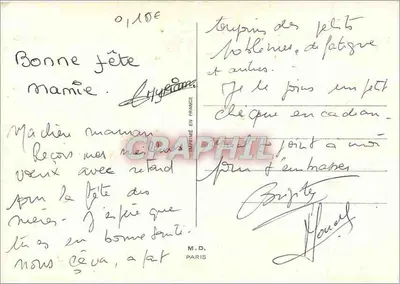 0,10€
Bonne fête
mamie.
Myriam
Ma chère maman
Reçois mes meilleurs
vœux avec retard
pour la fête des
mères. J'espère que
tu es en bonne santé.
nous ça va, a part
toujours des petits
problèmes, de fatigue
et autres.
Je te joins un petit
chèque en cadeau.
joint a moi
pour t'embrasser
Brigitte
IMPRIMÉ EN FRANCE
M.D.
PARIS
CPAPHIL.COM